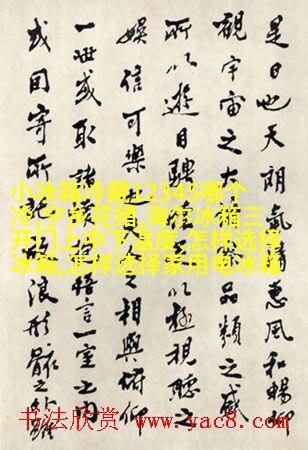 是日也天朗氣清惠風和暢仰
觀宇宙之大品類之盛
所以遊目騁以極視聽之
娛信可樂也人之相與俯仰
一世或取諸悟言一室之內
或因寄所託浪形骸之外雖
小冰箱冷藏12345哪个
冷,宁花猪,海尔冰箱三
开门上中下温度,怎样选择
冰箱,怎样选择家用电冰箱
书法欣赏 www.yac8.com